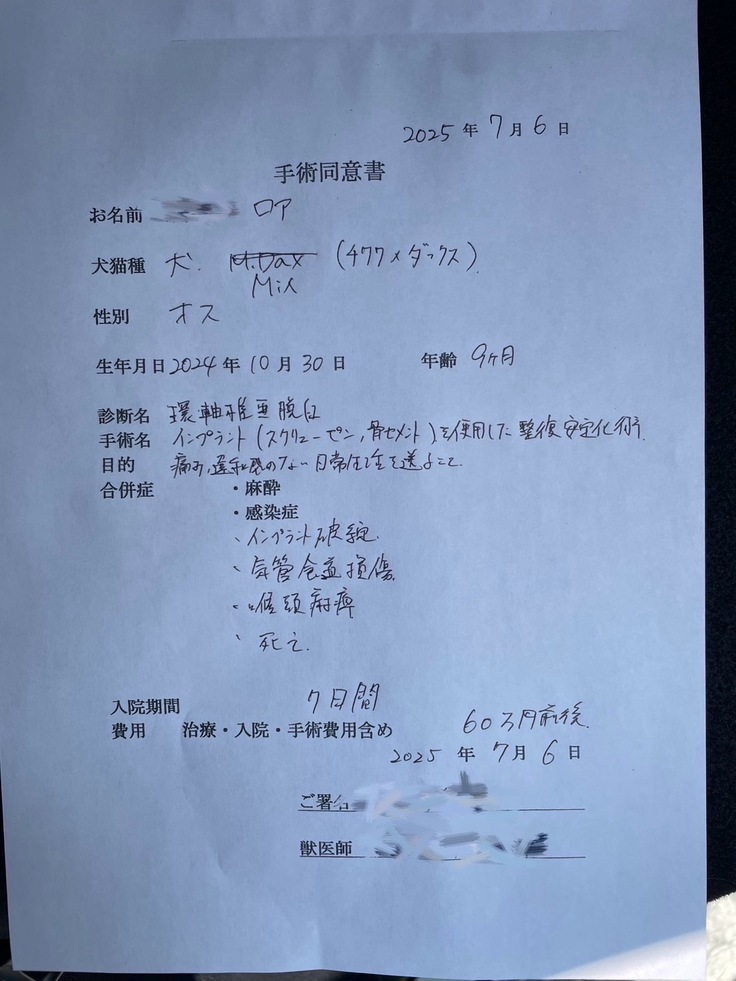 2025 年 7 月 6 日
手術同意書
お名前 ロア
犬猫種 犬. M.Dax (チワワ×ダックス)
Mix
性別 オス
生年月日 2024 年 10 月 30 日 年齢 9ヶ月
診断名 環軸椎亜脱臼
手術名 インプラント(スクリューピン,骨セメント)を使用した整復安定化術
目的 痛み,違和感のない日常生活を送ること
合併症 ・麻酔
・感染症
・インプラント破綻
・気管食道損傷
・喉頭麻痺
・死亡
入院期間 7日間
費用 治療・入院・手術費用含め 60万円前後
2025 年 7 月 6 日
ご署名
獣医師